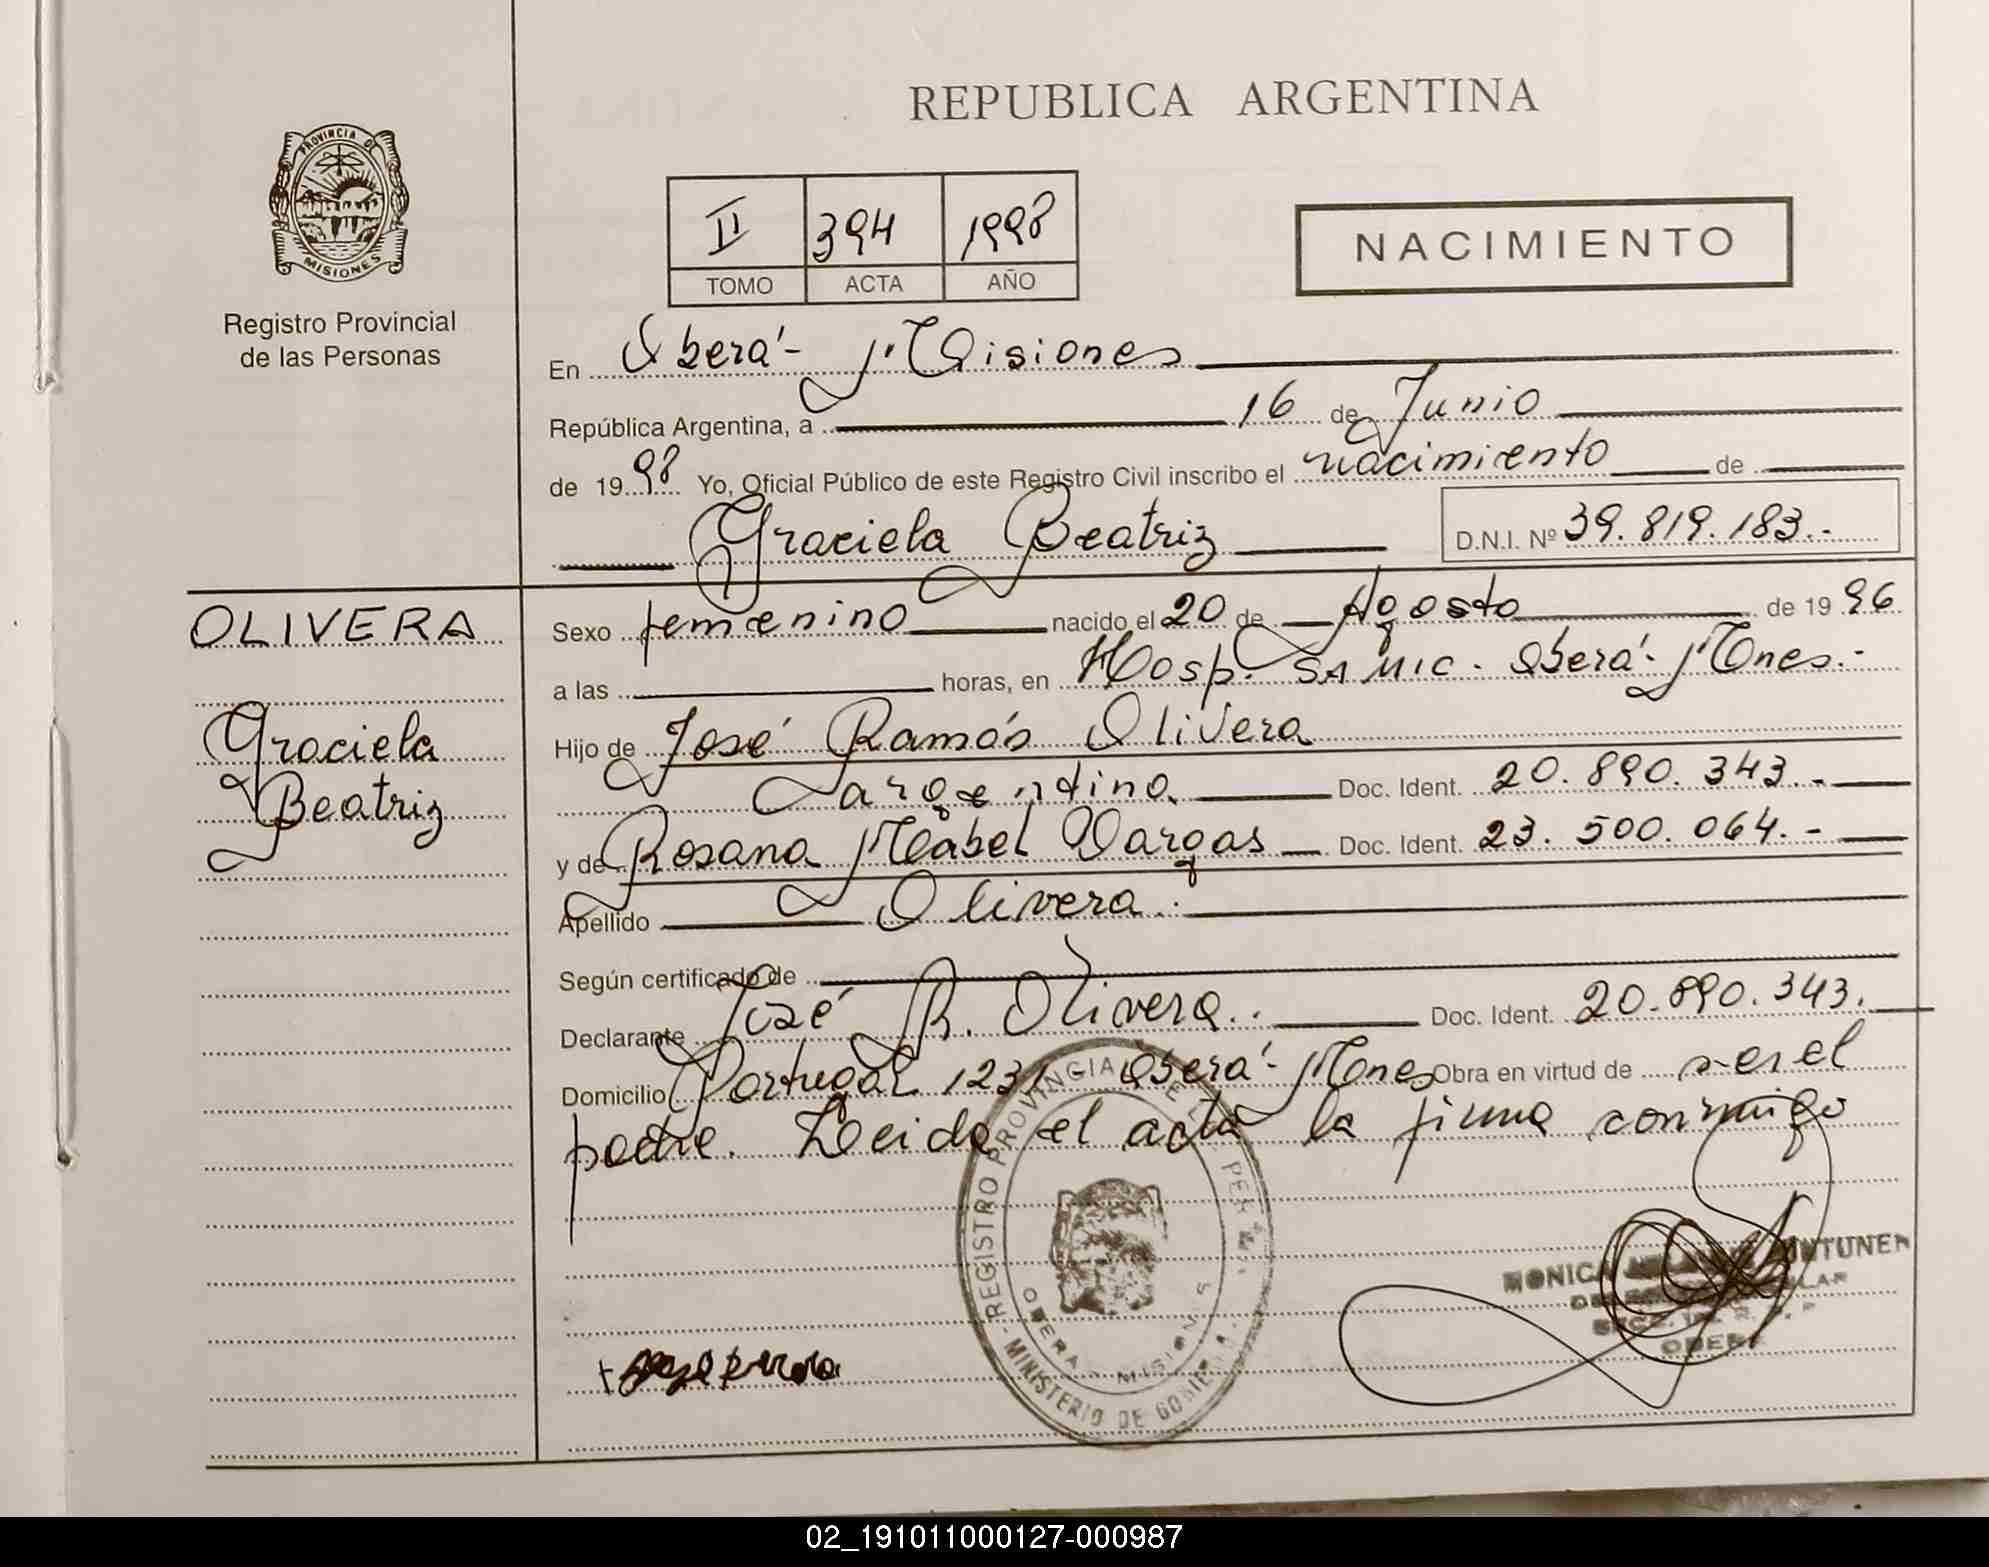 REPUBLICA ARGENTINA
PROVINCIA DE
MISIONES
Registro Provincial
de las Personas
II 394 1998
TOMO ACTA AÑO
NACIMIENTO
En Oberá - Misiones
República Argentina, a 16 de Junio
de 1998 Yo, Oficial Público de este Registro Civil inscribo el nacimiento de
Graciela Beatriz D.N.I. Nº 39.819.183.-
OLIVERA
Graciela
Beatriz
Sexo femenino nacido el 20 de Agosto de 1996
a las horas, en Hosp. SAMIC. Oberá - Mnes.-
Hijo de José Ramón Olivera
argentino Doc. Ident. 20.890.343.-
y de Rosana Mabel Vargas Doc. Ident. 23.500.064.-
Apellido Olivera.
Según certificado de
Declarante José R. Olivera. Doc. Ident. 20.890.343.
Domicilio Portugal 1231 Oberá - Mnes Obra en virtud de ser el
padre. Leida el acta la firma conmigo
REGISTRO PROVINCIAL DE
MINISTERIO DE
OBERA MISIONES
MONICA
OBERA
02_191011000127-000987